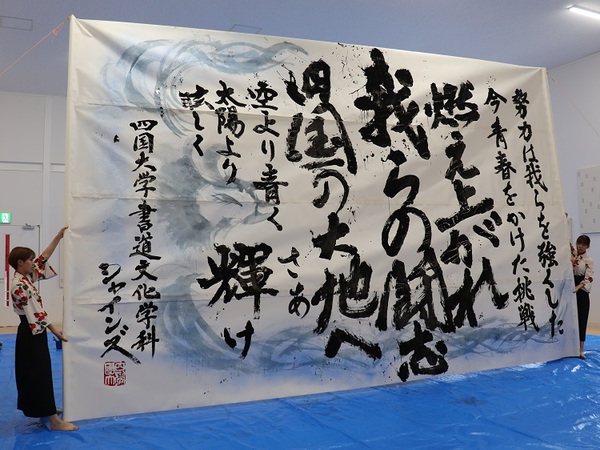 努力は我らを強くした
今青春をかけた挑戦
燃え上がれ
我らの闘志
四国の大地へ
空より青く
太陽より
眩しく
さあ
輝け
四国大学書道文化学科
シャインズ